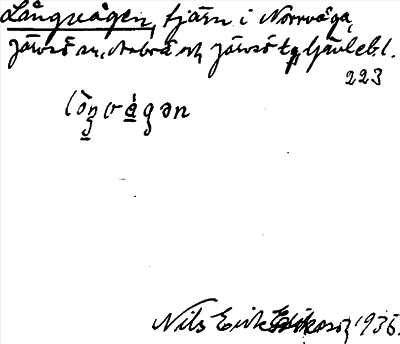 Långvågen, tjärn i Norrvåga,
Järvsö sn, Arbrå och Järvsö tg, Gävleb. l.
223
Nils Erik Eriksson, 1935.